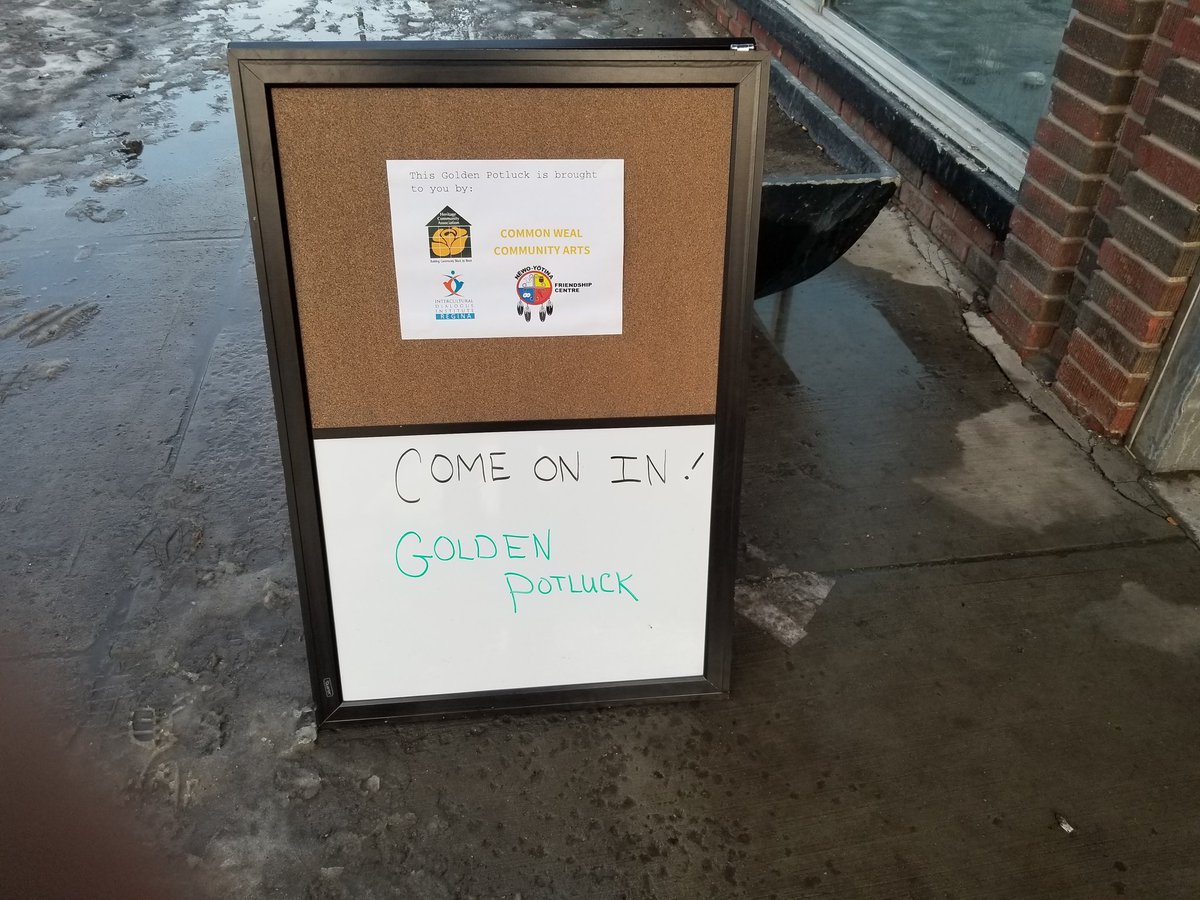 This Golden Potluck is brought
to you by:
Heritage
Community
Association
Building Community Block by Block
COMMON WEAL
COMMUNITY ARTS
INTERCULTURAL
DIALOGUE
INSTITUTE
REGINA
NEWO-YOTINA
FRIENDSHIP
CENTRE
COME ON IN!
GOLDEN
POTLUCK
Quartet